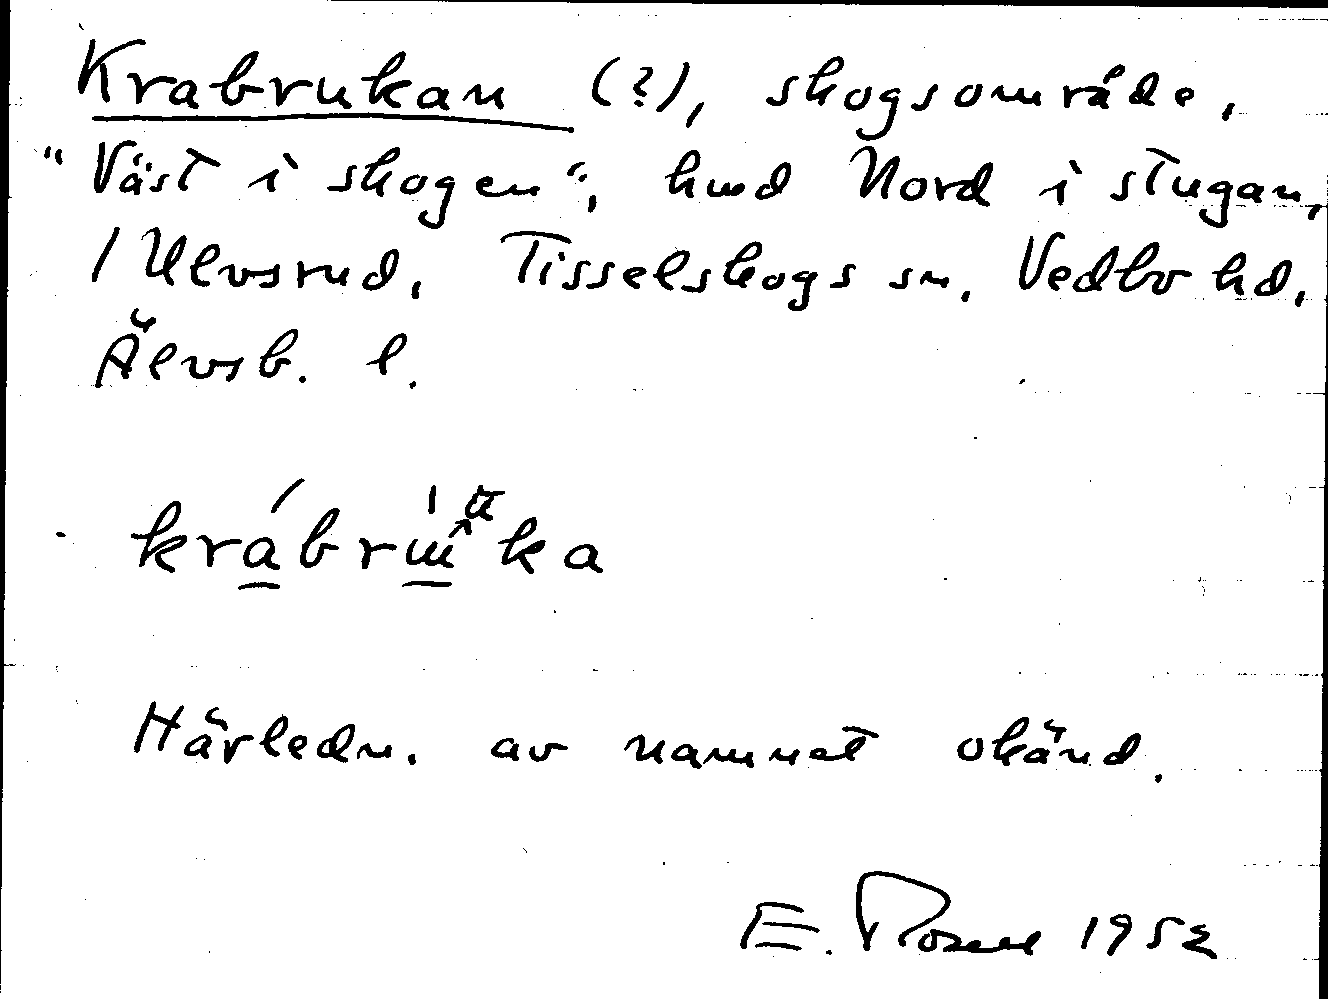 Krabrukan (?), skogsområde,
"Väst i skogen", hmd Nord i stugan,
1 Ulvsrud, Tisselskogs sn, Vedbo hd,
Älvsb. l.
Härledn. av namnet okänd.
E. Rosell 1952